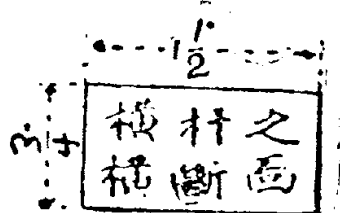 1 1/2
3/4
橫杆之
橫斷面